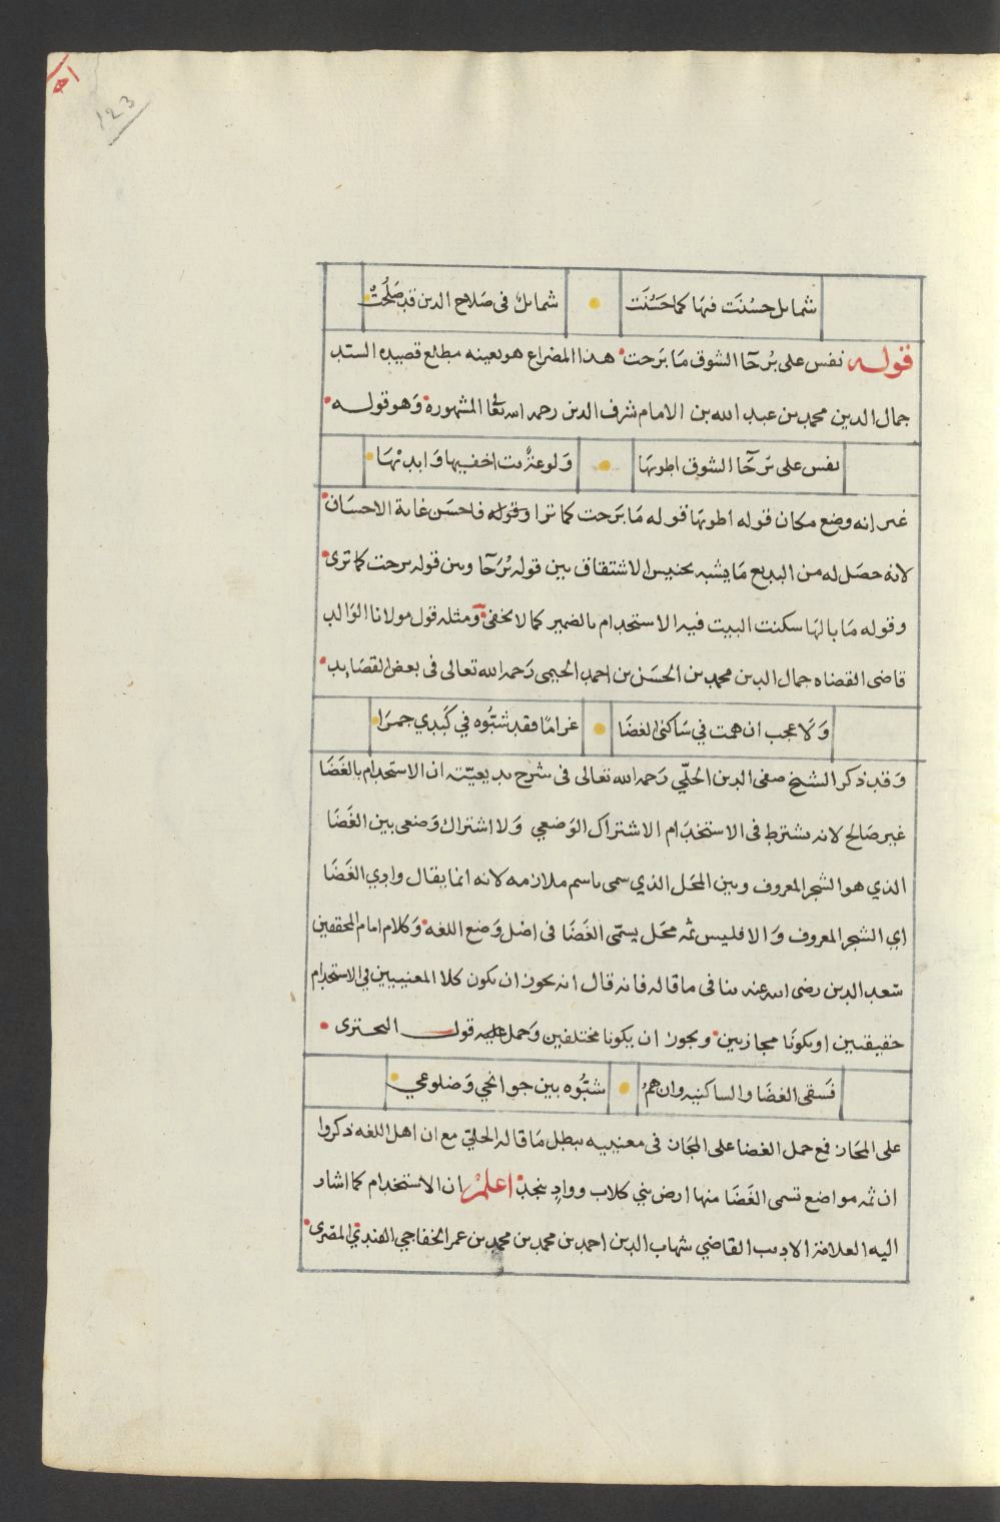 123
شمايل حسُنَت فيهَا كما حَسُنَت • شمايل في صَلاح الدين قد صَلُحَتْ
قوله نفس على بُرحَآ الشوق مَا بَرحت هذا المضراع هو بعينه مطلع قصيده السيد
جمال الدين محمد بن عبد الله بن الامام شرف الدين رحمه الله تعا المشهورة وَهو قوله
نفس على بُرحَّا الشوق اطويهَا • وَلو عزت اخفيها وَابديهَا
غير انه وضع مكان قوله اطويهَا قوله مَا بَرحت كما ترا وقوله فاحسَن غاية الاحسَان
لانه حصَل له من البديع مَا يشبه تجنيس الاشتقاق بين قوله بُرَحَآ وبين قوله برحت كما ترى
وقوله مَا بالهَا سكنت البيت فيه الاستخدام بالضمير كما لا يخفى ومثله قول مولانا الوَالد
قاضى القضاه جمال الدين محمد بن الحسَن بن احمد الحيمي رَحمه الله تعالى في بعض القصَايد
وَلَا عجب ان همت في سَاكنى الغضَا • غرامًا فقد شبُّوه في كَبِدي جمرَا
وَقد ذكر الشيخ صفى الدين الحلّي رَحمه الله تعالى في شرح بديعيّته ان الاستخدام بالغَضَا
غير صَالح لانه يشترط في الاستخدَام الاشتراك الوَضعي وَلا اشتراك وَضعى بين الغَضَا
الذي هو الشجر المعروف وبين المحَل الذي سمى باسم ملازمه لانه انما يقال وادِي الغَضَا
اي الشجر المعروف وَالا فليس ثمه محَل يسمّى الغَضَا في اصْل وَضع اللغه وَكلام امام المحققين
سَعد الدين رضى الله عنه ينافى ما قاله فانه قال انه يجوز ان يكون كلا المعنيين في الاستخدام
حقيقيين او يكونَا مجازيين ويجوز ان يكونا مختلفين وَحمل عليه قول البحترى
فَسقى الغضَا والساكنيه وان همُ • شبُّوه بين جوانحي وَضلوعي
على المجاز فمع حمل الغضا على المجَاز في معنييه يبطل مَا قاله الحلى مع ان اهل اللغه ذكروا
ان ثمه مواضع تسمى الغَضَا منها ارض بني كلاب ووادٍ بنجد اعلم ان الاستخدام كما اشار
اليه العلامة الاديب القاضي شهاب الدين احمد بن محمد بن محمد بن عمر الخفاجي الفندي المصرى